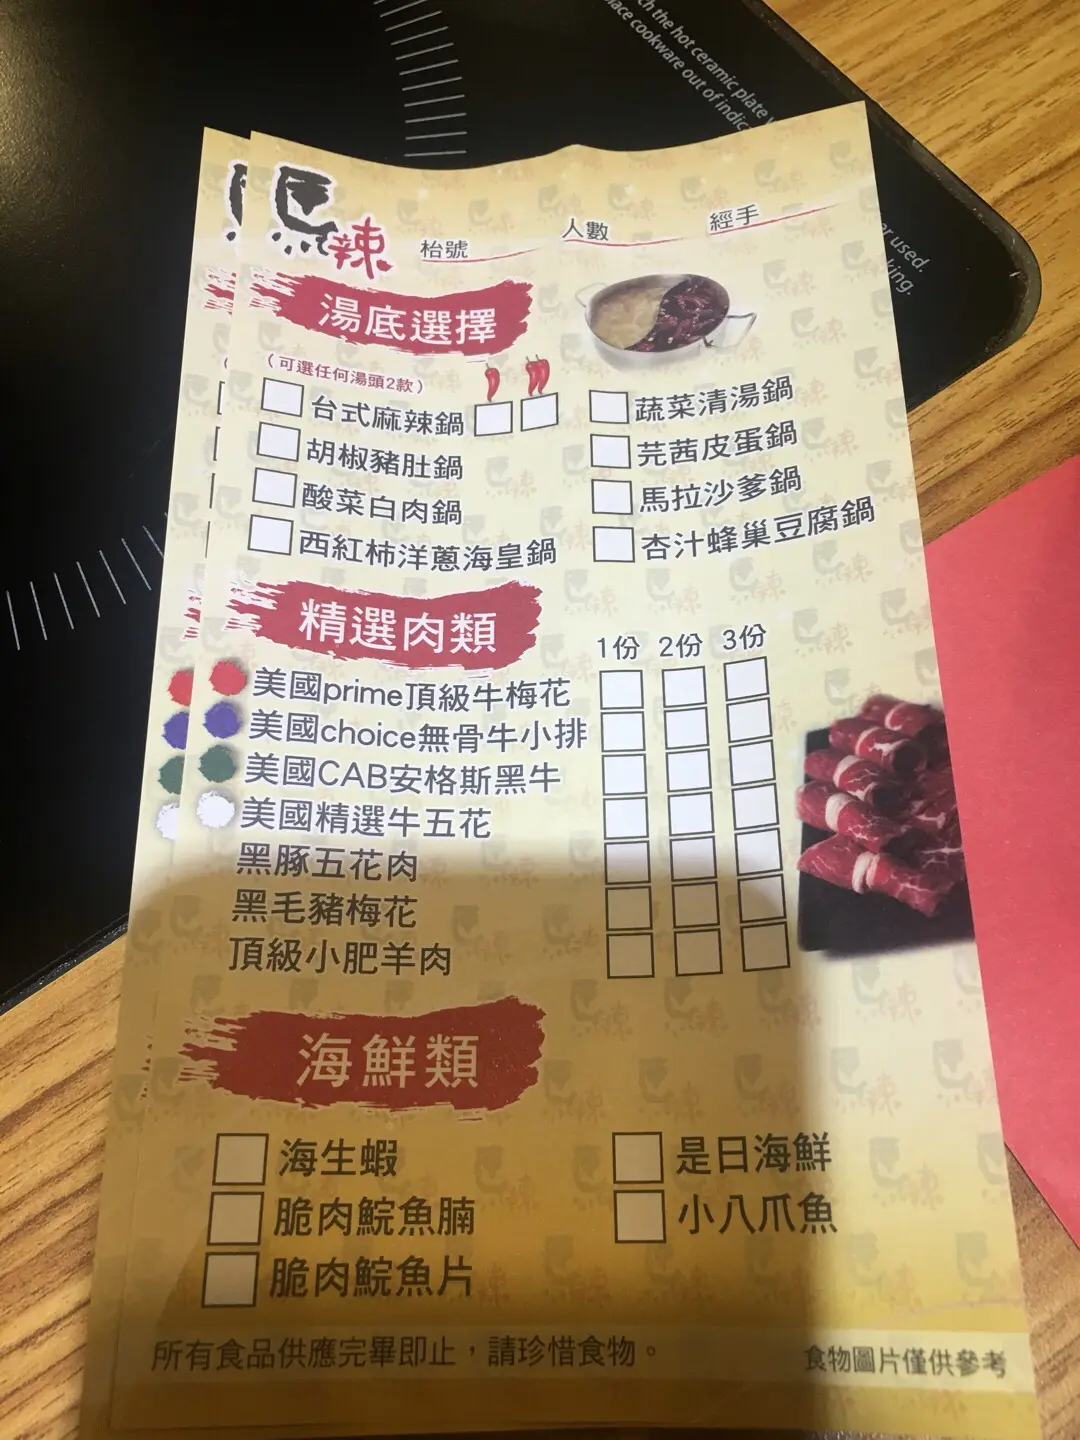 ch the hot ceramic plate
lace cookware out of indic
er used.
king.
馬辣
枱號
人數
經手
湯底選擇
(可選任何湯頭2款)
台式麻辣鍋
蔬菜清湯鍋
胡椒豬肚鍋
芫茜皮蛋鍋
酸菜白肉鍋
馬拉沙爹鍋
西紅柿洋蔥海皇鍋
杏汁蜂巢豆腐鍋
精選肉類
1份 2份 3份
美國prime頂級牛梅花
美國choice無骨牛小排
美國CAB安格斯黑牛
美國精選牛五花
黑豚五花肉
黑毛豬梅花
頂級小肥羊肉
海鮮類
海生蝦
是日海鮮
脆肉鯇魚腩
小八爪魚
脆肉鯇魚片
所有食品供應完畢即止，請珍惜食物。
食物圖片僅供參考